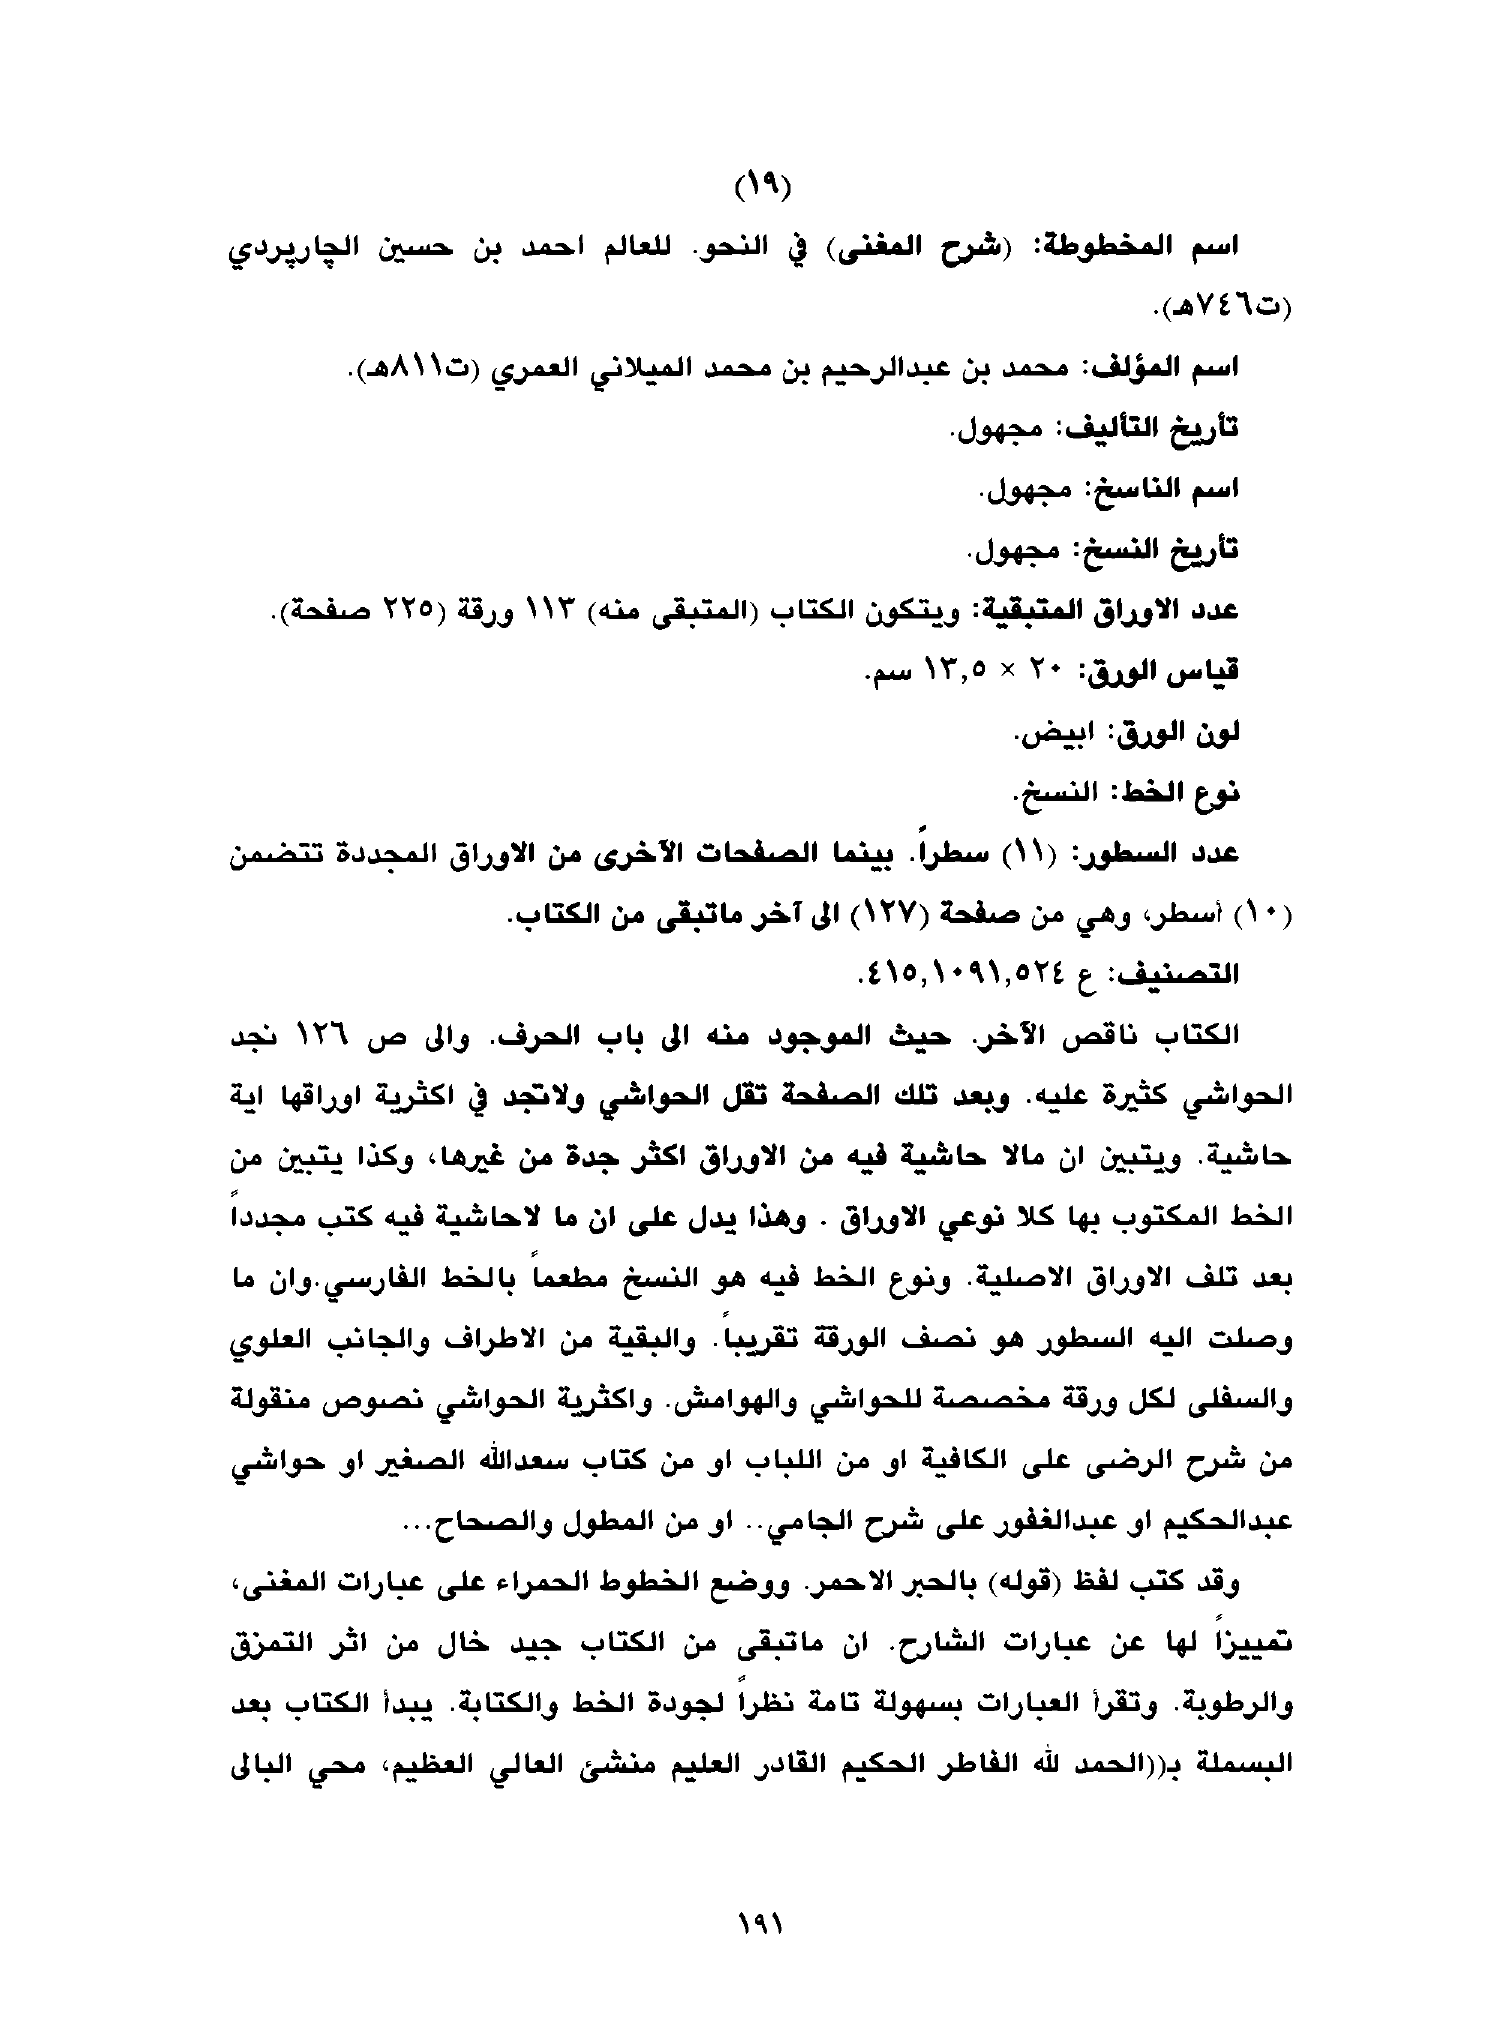 (١٩)
اسم المخطوطة: (شرح المغنى) في النحو. للعالم احمد بن حسين الچارپردي
(ت٧٤٦هـ).
اسم المؤلف: محمد بن عبدالرحيم بن محمد الميلاني العمري (ت٨١١هـ).
تأريخ التأليف: مجهول.
اسم الناسخ: مجهول.
تأريخ النسخ: مجهول.
عدد الاوراق المتبقية: ويتكون الكتاب (المتبقى منه) ١١٣ ورقة (٢٢٥ صفحة).
قياس الورق: ٢٠ × ١٣,٥ سم.
لون الورق: ابيض.
نوع الخط: النسخ.
عدد السطور: (١١) سطراً. بينما الصفحات الآخرى من الاوراق المجددة تتضمن
(١٠) أسطر، وهي من صفحة (١٢٧) الى آخر ماتبقى من الكتاب.
التصنيف: ع ٤١٥,١٠٩١,٥٢٤.
الكتاب ناقص الآخر. حيث الموجود منه الى باب الحرف. والى ص ١٢٦ نجد
الحواشي كثيرة عليه. وبعد تلك الصفحة تقل الحواشي ولاتجد في اكثرية اوراقها اية
حاشية. ويتبين ان مالا حاشية فيه من الاوراق اكثر جدة من غيرها، وكذا يتبين من
الخط المكتوب بها كلا نوعي الاوراق . وهذا يدل على ان ما لاحاشية فيه كتب مجدداً
بعد تلف الاوراق الاصلية. ونوع الخط فيه هو النسخ مطعماً بالخط الفارسي.وان ما
وصلت اليه السطور هو نصف الورقة تقريباً. والبقية من الاطراف والجانب العلوي
والسفلى لكل ورقة مخصصة للحواشي والهوامش. واكثرية الحواشي نصوص منقولة
من شرح الرضى على الكافية او من اللباب او من كتاب سعدالله الصغير او حواشي
عبدالحكيم او عبدالغفور على شرح الجامي.. او من المطول والصحاح...
وقد كتب لفظ (قوله) بالحبر الاحمر. ووضع الخطوط الحمراء على عبارات المغنى،
تمييزاً لها عن عبارات الشارح. ان ماتبقى من الكتاب جيد خال من اثر التمزق
والرطوبة. وتقرأ العبارات بسهولة تامة نظراً لجودة الخط والكتابة. يبدأ الكتاب بعد
البسملة بـ((الحمد لله الفاطر الحكيم القادر العليم منشئ العالي العظيم، محي البالى
١٩١